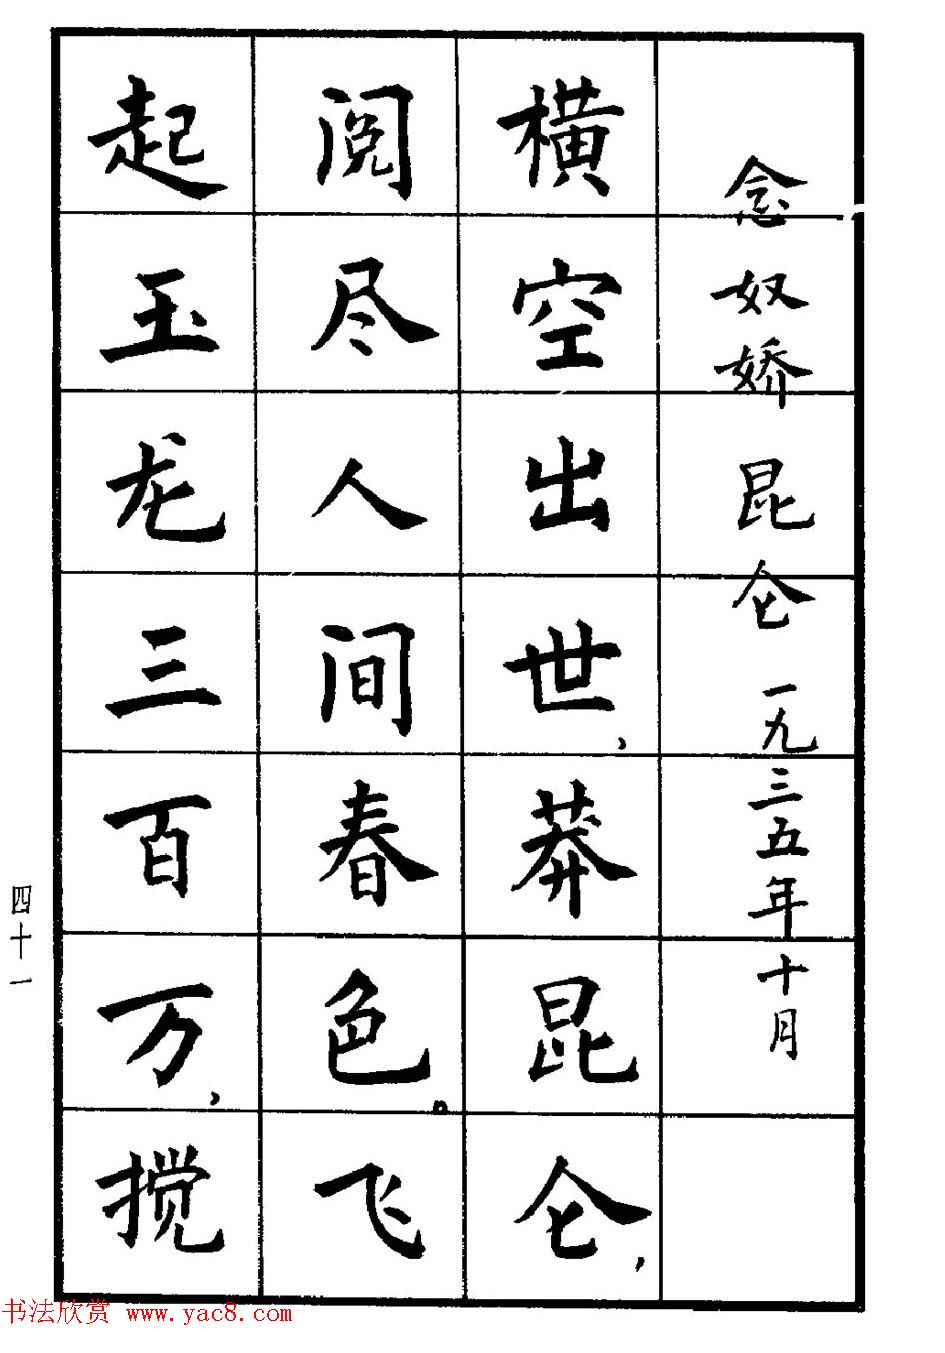 念奴娇 昆仑 一九三五年十月
横空出世，莽昆仑，
阅尽人间春色。飞
起玉龙三百万，搅
四十一
书法欣赏 www.yac8.com